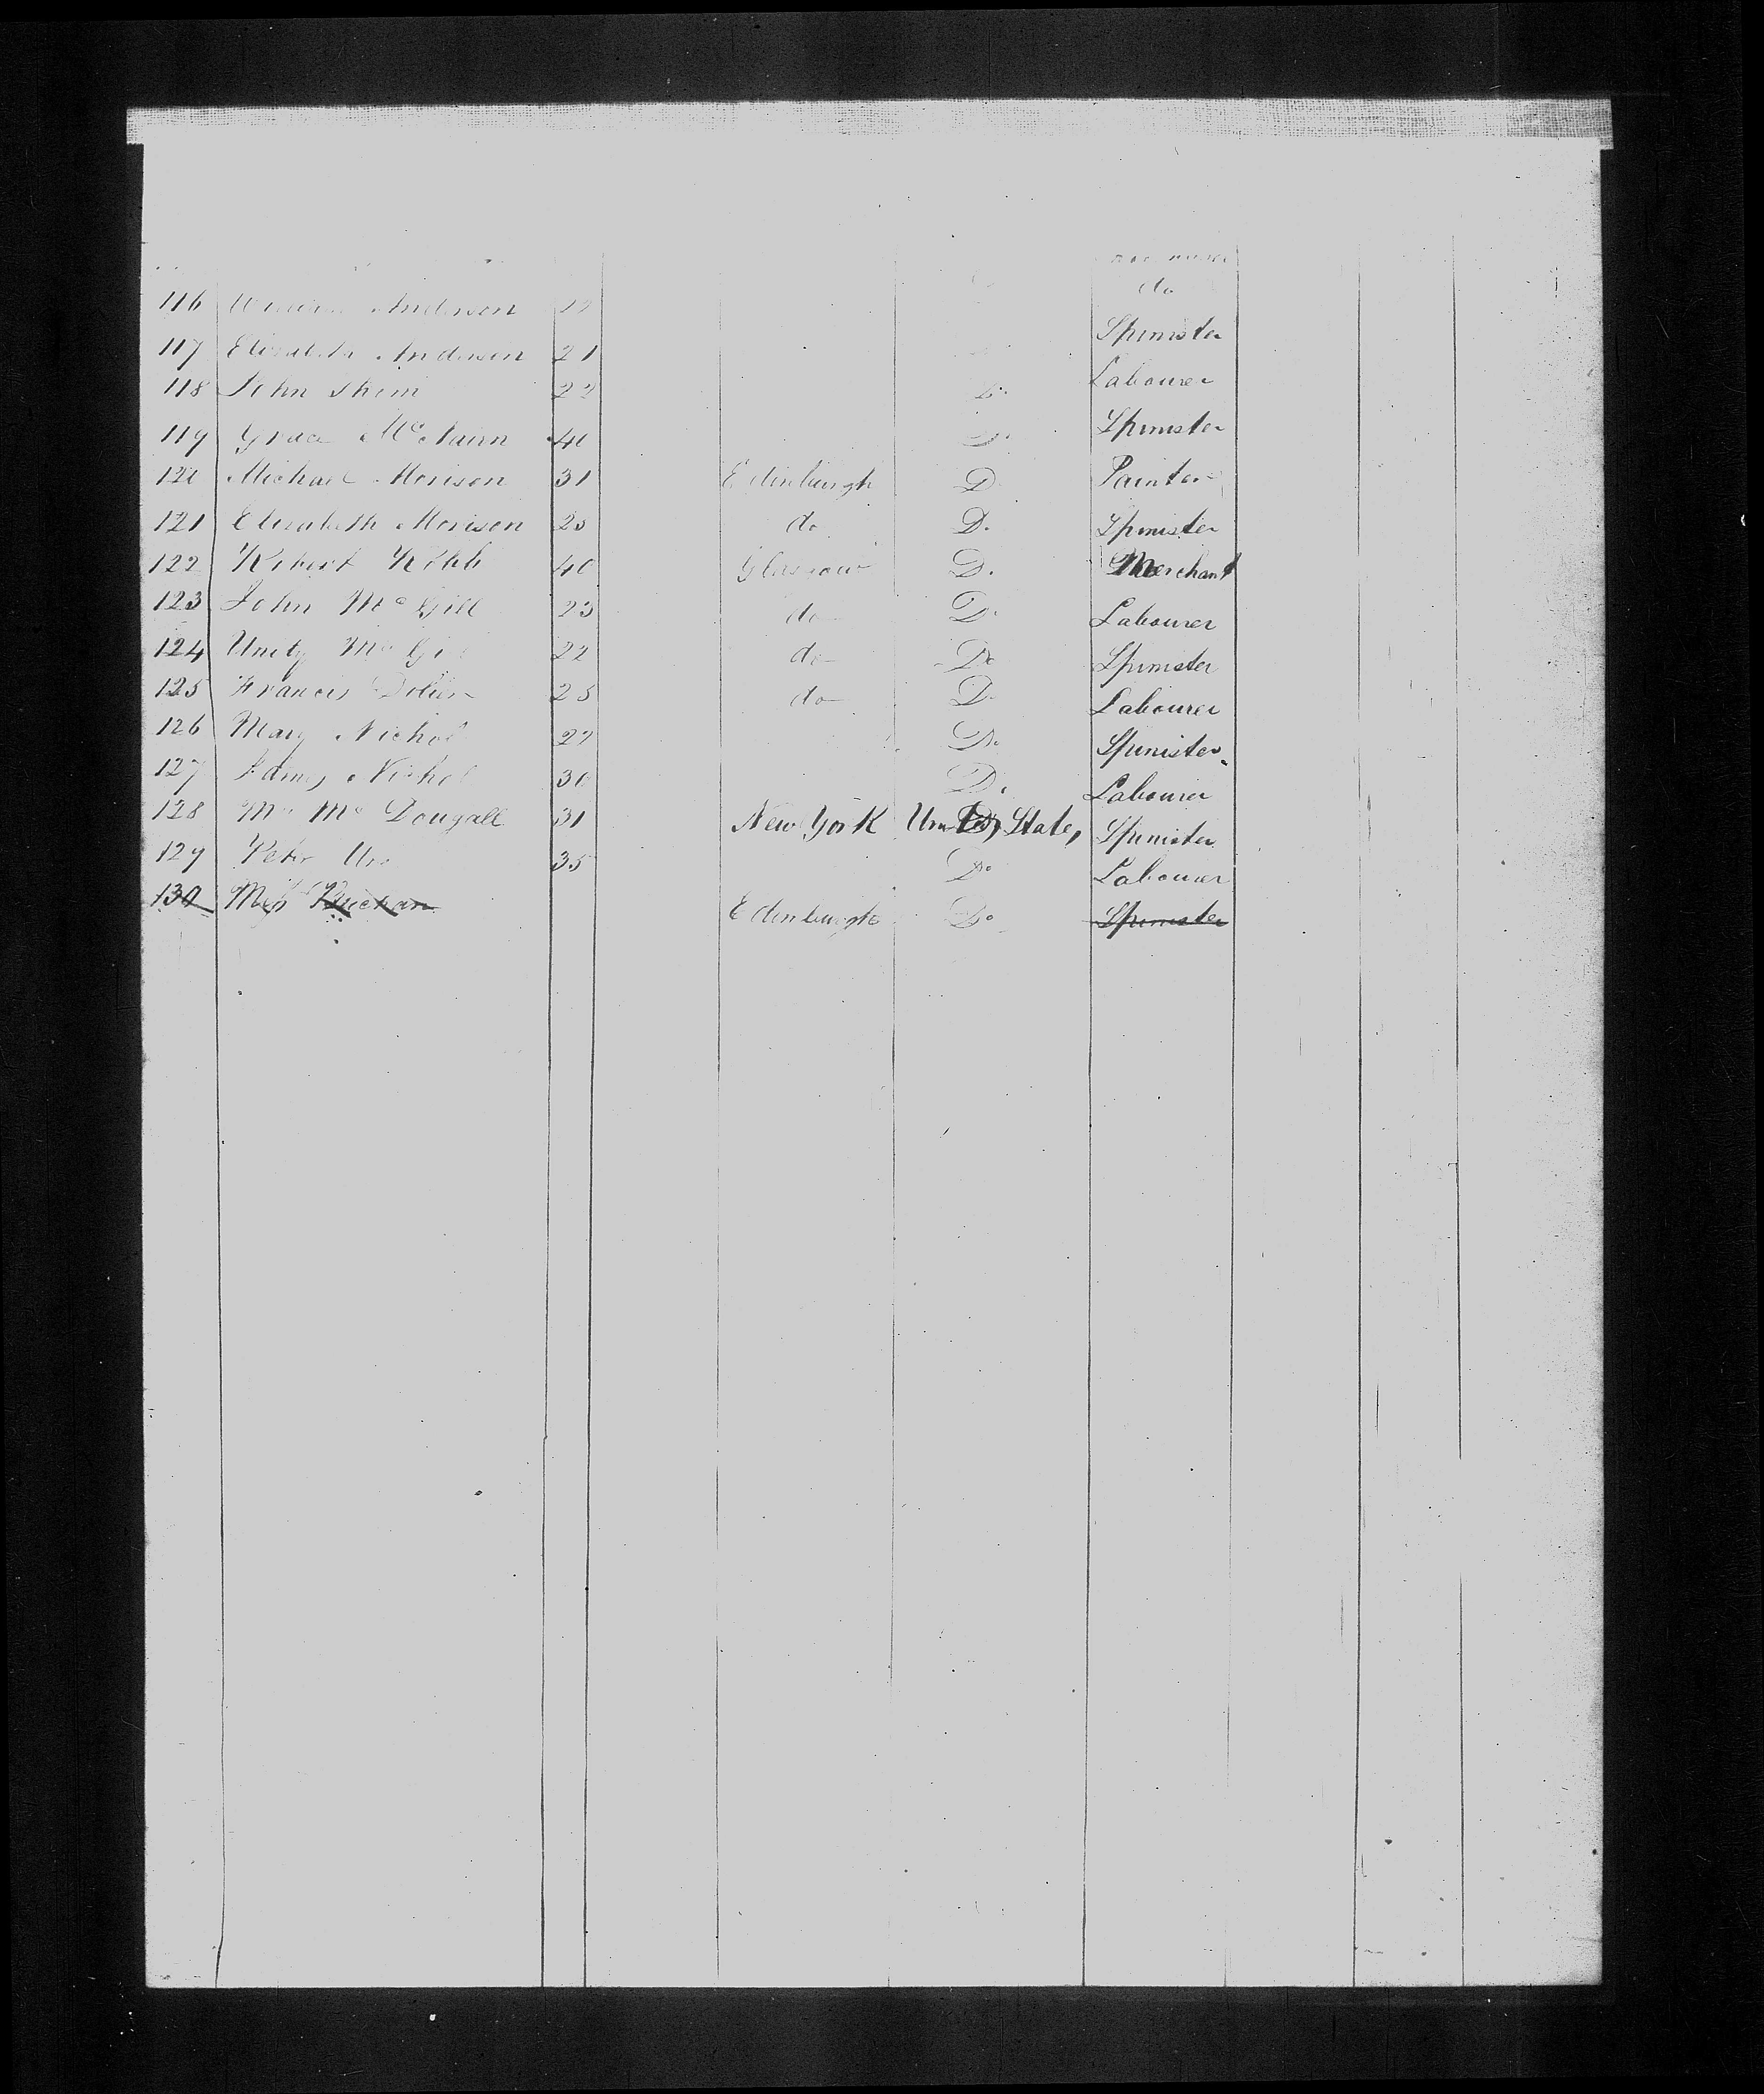 do
116 William Anderson
117 Elizabeth Anderson 21 Spinster
118 John Shem 22 Labourer
119 Grace Mc Nairn 40 Spinster
120 Michael Morison 31 Edinburgh D. Painter
121 Elizabeth Morison 25 do D. Spinster
122 Robert Robb 40 Glasgow D. Merchant
123 John Mc Gill 23 do D. Labourer
124 Unity Mc 22 do Do Spinster
125 Francis 25 do D. Labourer
126 Mary Nichol 27 Do. Spinster
127 James Nichol 30 D. Labourer
128 Mc Dougall 31 New York United States Spinster
129 Peter 35 Do Labourer
130 Miss Buchan Edinburgh Do Spinster